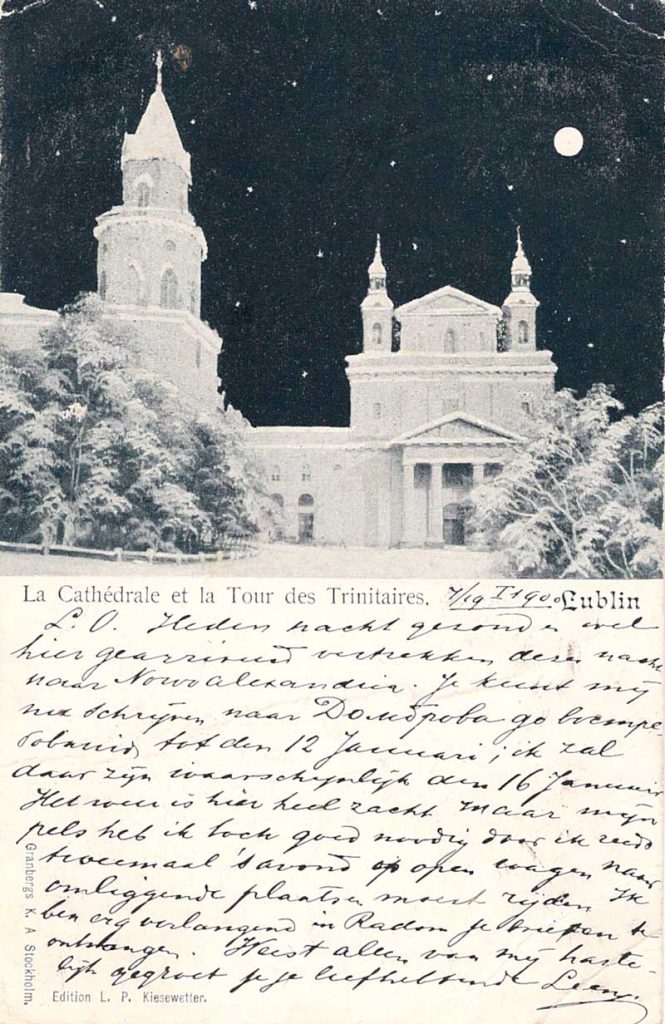 La Cathédrale et la Tour des Trinitaires. 7/19 I 1900 Lublin
L. O. Heden nacht gezond en wel
hier gearriveerd vertrekken deze nacht
naar Nowo alexandria. Je kunt mij
nu schrijven naar Домброва до востре
бованія tot den 12 Januari; ik zal
daar zijn waarschijnlijk den 16 Januari
Het weer is hier heel zacht maar mijn
pels heb ik toch goed noodig door ik reeds
tweemaal 's avond op open wagen naar
omliggende plaatsen moest rijden. Ik
ben erg verlangend in Radom je brieven te
ontvangen. Weest allen van mij harte-
lijk gegroet je je liefhebbende Leeny.
Granbergs K. A Stockholm.
Edition L. P. Kiesewetter.